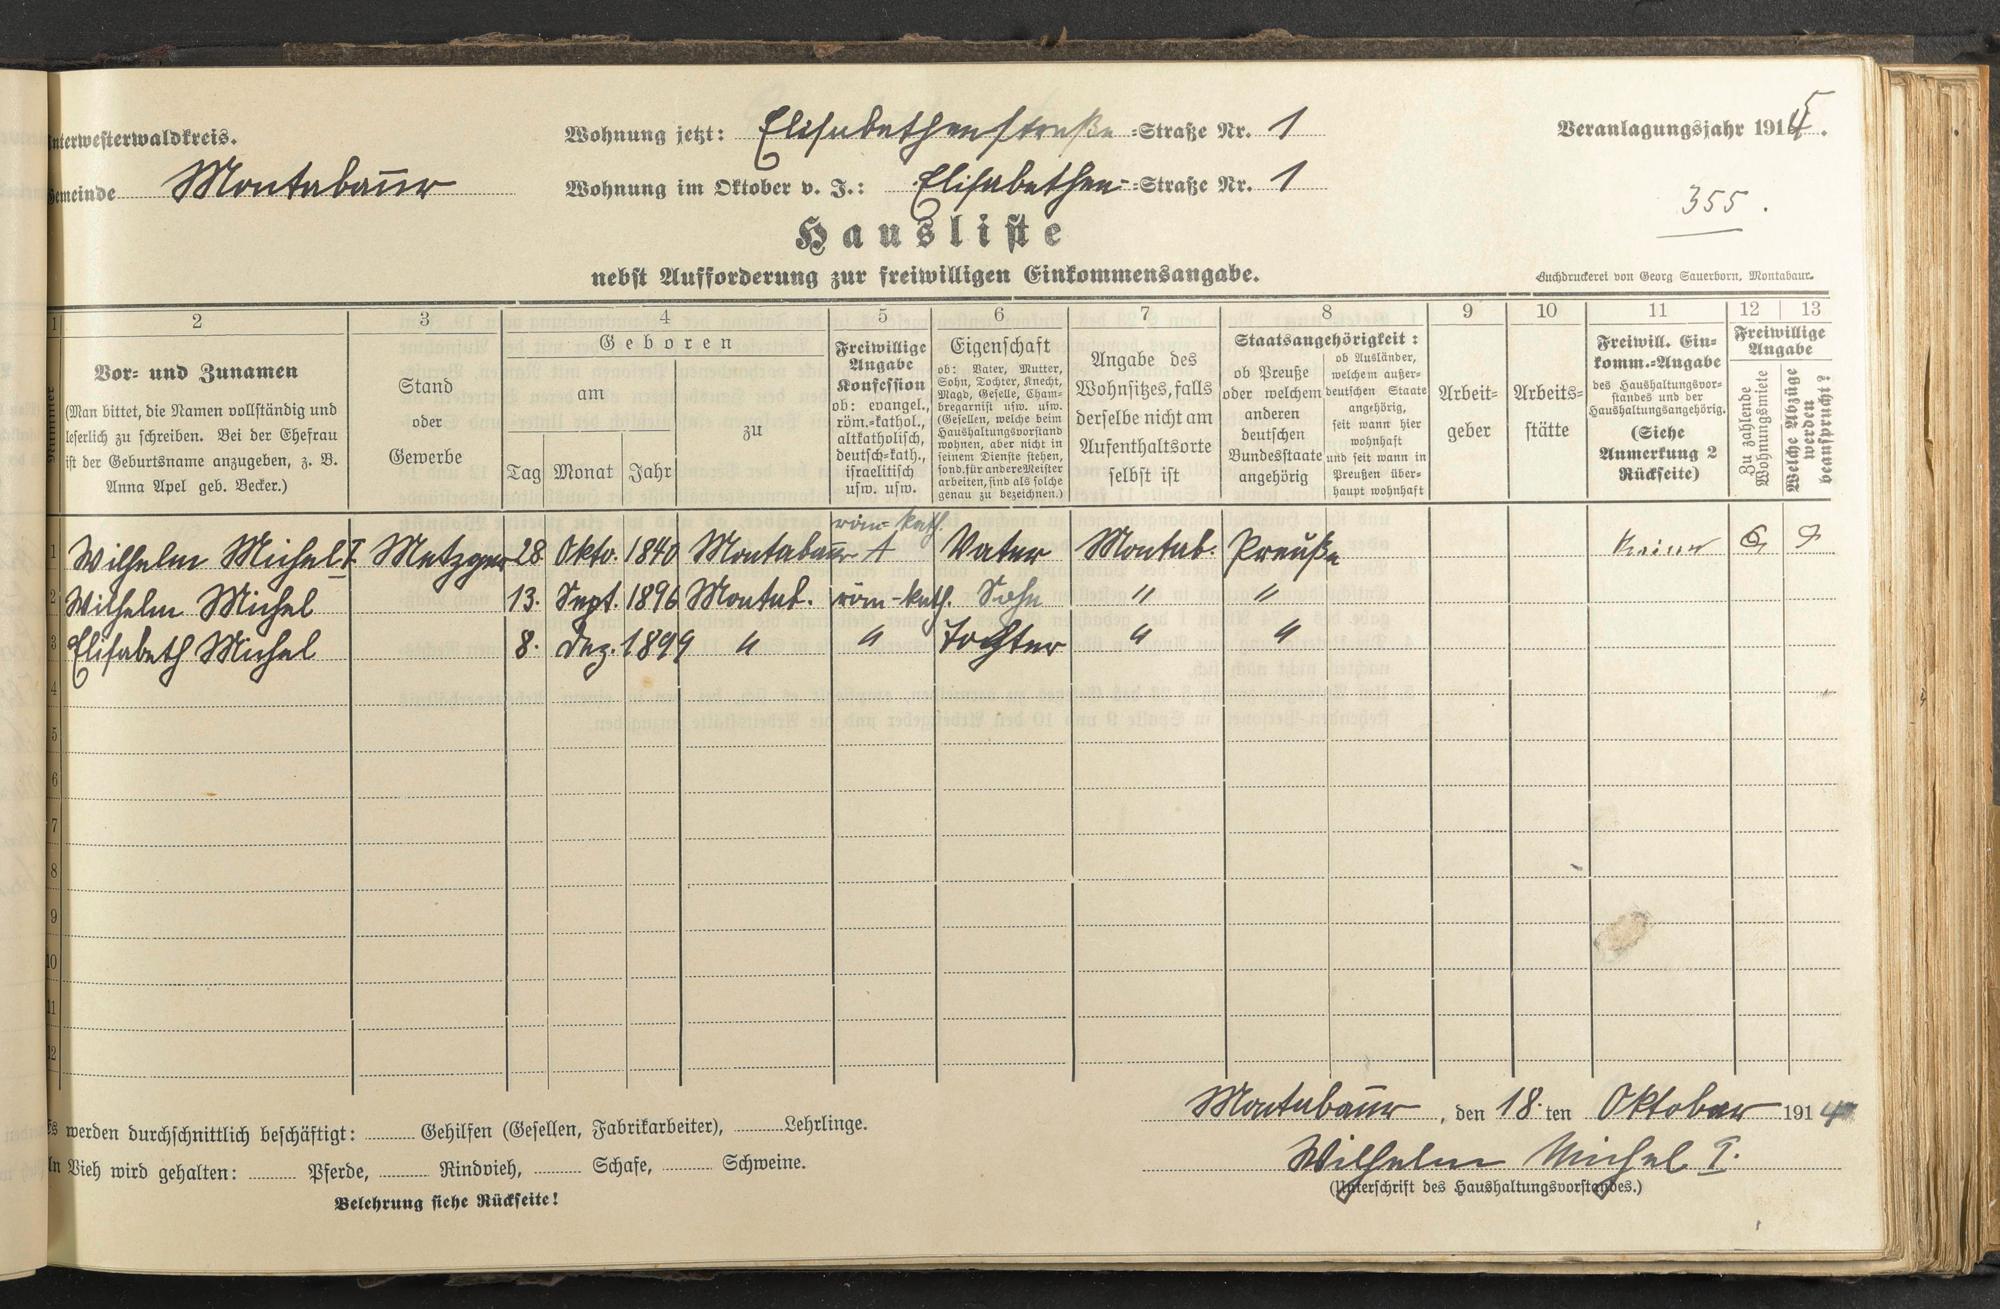 Unterwesterwaldkreis.
Gemeinde Montabaur
Wohnung jetzt: Elisabethenstraße =Straße Nr. 1
Wohnung im Oktober v. J.: Elisabethen- =Straße Nr. 1
Veranlagungsjahr 1915.
355.
Hausliste
nebst Aufforderung zur freiwilligen Einkommensangabe.
Buchdruckerei von Georg Sauerborn, Montabaur.
1 2 3 4 5 6 7 8 9 10 11 12 13
Nummer
Vor- und Zunamen
(Man bittet, die Namen vollständig und
leserlich zu schreiben. Bei der Ehefrau
ist der Geburtsname anzugeben, z. B.
Anna Apel geb. Becker.)
Stand
oder
Gewerbe
Geboren
am
Tag Monat Jahr
zu
Freiwillige
Angabe
Konfession
ob: evangel.,
röm.-kathol.,
altkatholisch,
deutsch-kath.,
israelitisch
usw. usw.
Eigenschaft
ob: Vater, Mutter,
Sohn, Tochter, Knecht,
Magd, Geselle, Cham-
bregarnist usw. usw.
(Gesellen, welche beim
Haushaltungsvorstand
wohnen, aber nicht in
seinem Dienste stehen,
sond. für andere Meister
arbeiten, sind als solche
genau zu bezeichnen.)
Angabe des
Wohnsitzes, falls
derselbe nicht am
Aufenthaltsorte
selbst ist
Staatsangehörigkeit:
ob Preuße
oder welchem
anderen
deutschen
Bundesstaate
angehörig
ob Ausländer,
welchem außer-
deutschen Staate
angehörig,
seit wann hier
wohnhaft
und seit wann in
Preußen über-
haupt wohnhaft
Arbeit-
geber
Arbeits-
stätte
Freiwill. Ein-
komm.-Angabe
des Haushaltungsvor-
standes und der
Haushaltungsangehörig.
(Siehe
Anmerkung 2
Rückseite)
Freiwillige
Angabe
Zu zahlende
Wohnungsmiete
Welche Abzüge
werden
beansprucht?
1 Wilhelm Michel I Metzger 28 Okto. 1840 Montabaur röm-kath. Vater Montab. Preuße
2 Wilhelm Michel 13. Sept. 1896 Montab. röm-kath. Sohn " "
3 Elisabeth Michel 8. Dez. 1899 " " Tochter " "
4
5
6
7
8
9
10
11
12
Es werden durchschnittlich beschäftigt: Gehilfen (Gesellen, Fabrikarbeiter), Lehrlinge.
An Vieh wird gehalten: Pferde, Rindvieh, Schafe, Schweine.
Belehrung siehe Rückseite!
Montabaur, den 18. ten Oktober 1914
Wilhelm Michel I.
(Unterschrift des Haushaltungsvorstandes.)